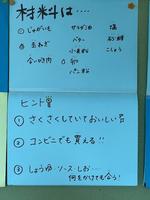 材料は・・・・
① じゃがいも
② 玉ねぎ
合いびき肉
サラダ油
バター
小麦粉
① 卵
パン粉
塩
砂糖
こしょう
ヒント
① さくさくしていておいしい
② コンビニでも買える!!
③ しょうゆ ソース・しお・・・
何をかけても合う!